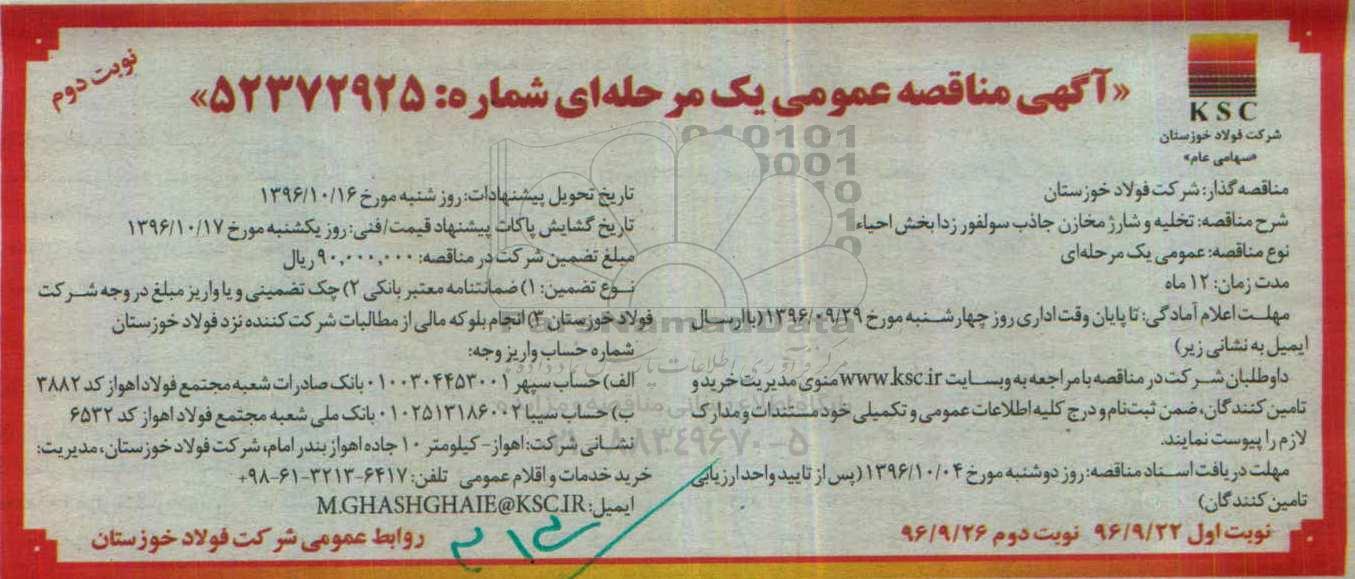 نوبت دوم
«آگهی مناقصه عمومی یک مرحله‌ای شماره: ۵۲۳۷۲۹۲۵»
KSC
شرکت فولاد خوزستان
«سهامی عام»
مناقصه گذار: شرکت فولاد خوزستان
شرح مناقصه: تخلیه و شارژ مخازن جاذب سولفور زدا بخش احیاء
نوع مناقصه: عمومی یک مرحله‌ای
مدت زمان: ۱۲ ماه
مهلت اعلام آمادگی: تا پایان وقت اداری روز چهارشنبه مورخ ۱۳۹۶/۰۹/۲۹ (با ارسال
ایمیل به نشانی زیر)
داوطلبان شرکت در مناقصه با مراجعه به وبسایت www.ksc.ir منوی مدیریت خرید و
تامین کنندگان، ضمن ثبت‌نام و درج کلیه اطلاعات عمومی و تکمیلی خود مستندات و مدارک
لازم را پیوست نمایند.
مهلت دریافت اسناد مناقصه: روز دوشنبه مورخ ۱۳۹۶/۱۰/۰۴ (پس از تایید واحد ارزیابی
تامین کنندگان)
تاریخ تحویل پیشنهادات: روز شنبه مورخ ۱۳۹۶/۱۰/۱۶
تاریخ گشایش پاکات پیشنهاد قیمت/فنی: روز یکشنبه مورخ ۱۳۹۶/۱۰/۱۷
مبلغ تضمین شرکت در مناقصه: ۹۰,۰۰۰,۰۰۰ ریال
نوع تضمین: ۱) ضمانتنامه معتبر بانکی ۲) چک تضمینی و یا واریز مبلغ در وجه شرکت
فولاد خوزستان ۳) انجام بلوکه مالی از مطالبات شرکت کننده نزد فولاد خوزستان
شماره حساب واریز وجه:
الف) حساب سپهر ۰۱۰۰۳۰۴۴۵۳۰۰۱ بانک صادرات شعبه مجتمع فولاد اهواز کد ۳۸۸۲
ب) حساب سیبا ۰۱۰۲۵۱۳۱۸۶۰۰۲ بانک ملی شعبه مجتمع فولاد اهواز کد ۶۵۳۲
نشانی شرکت: اهواز- کیلومتر ۱۰ جاده اهواز بندر امام، شرکت فولاد خوزستان، مدیریت:
خرید خدمات و اقلام عمومی تلفن: ۶۴۱۷-۳۲۱۳-۶۱-۹۸+
ایمیل: M.GHASHGHAIE@KSC.IR
نوبت اول ۹۶/۹/۲۲ نوبت دوم ۹۶/۹/۲۶
روابط عمومی شرکت فولاد خوزستان